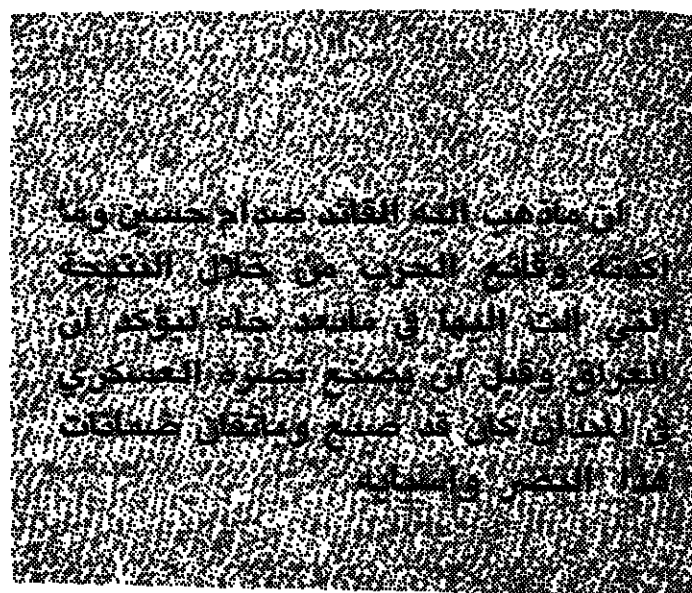 ان ماذهب اليه القائد صدام حسين وما
اكدته وقائع الحرب من خلال النتيجة
التي الت اليها في مابعد جاء ليؤكد ان
العراق وقبل ان يصنع نصره العسكري
في الميدان كان قد صنع وباتقان ضمانات
هذا النصر واسبابه